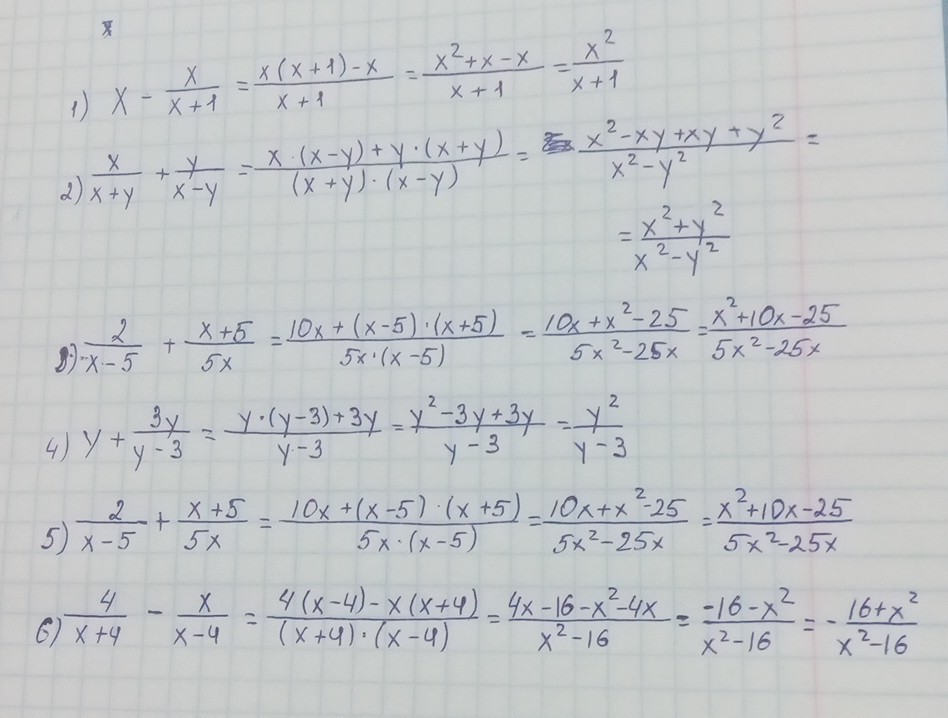 1) x - x/(x+1) = (x(x+1)-x)/(x+1) = (x²+x-x)/(x+1) = x²/(x+1)
2) x/(x+y) + y/(x-y) = (x·(x-y)+y·(x+y))/((x+y)·(x-y)) = (x²-xy+xy+y²)/(x²-y²) =
= (x²+y²)/(x²-y²)
3) 2/(x-5) + (x+5)/(5x) = (10x+(x-5)·(x+5))/(5x·(x-5)) = (10x+x²-25)/(5x²-25x) = (x²+10x-25)/(5x²-25x)
4) y + 3y/(y-3) = (y·(y-3)+3y)/(y-3) = (y²-3y+3y)/(y-3) = y²/(y-3)
5) 2/(x-5) + (x+5)/(5x) = (10x+(x-5)·(x+5))/(5x·(x-5)) = (10x+x²-25)/(5x²-25x) = (x²+10x-25)/(5x²-25x)
6) 4/(x+4) - x/(x-4) = (4(x-4)-x(x+4))/((x+4)·(x-4)) = (4x-16-x²-4x)/(x²-16) = (-16-x²)/(x²-16) = -(16+x²)/(x²-16)